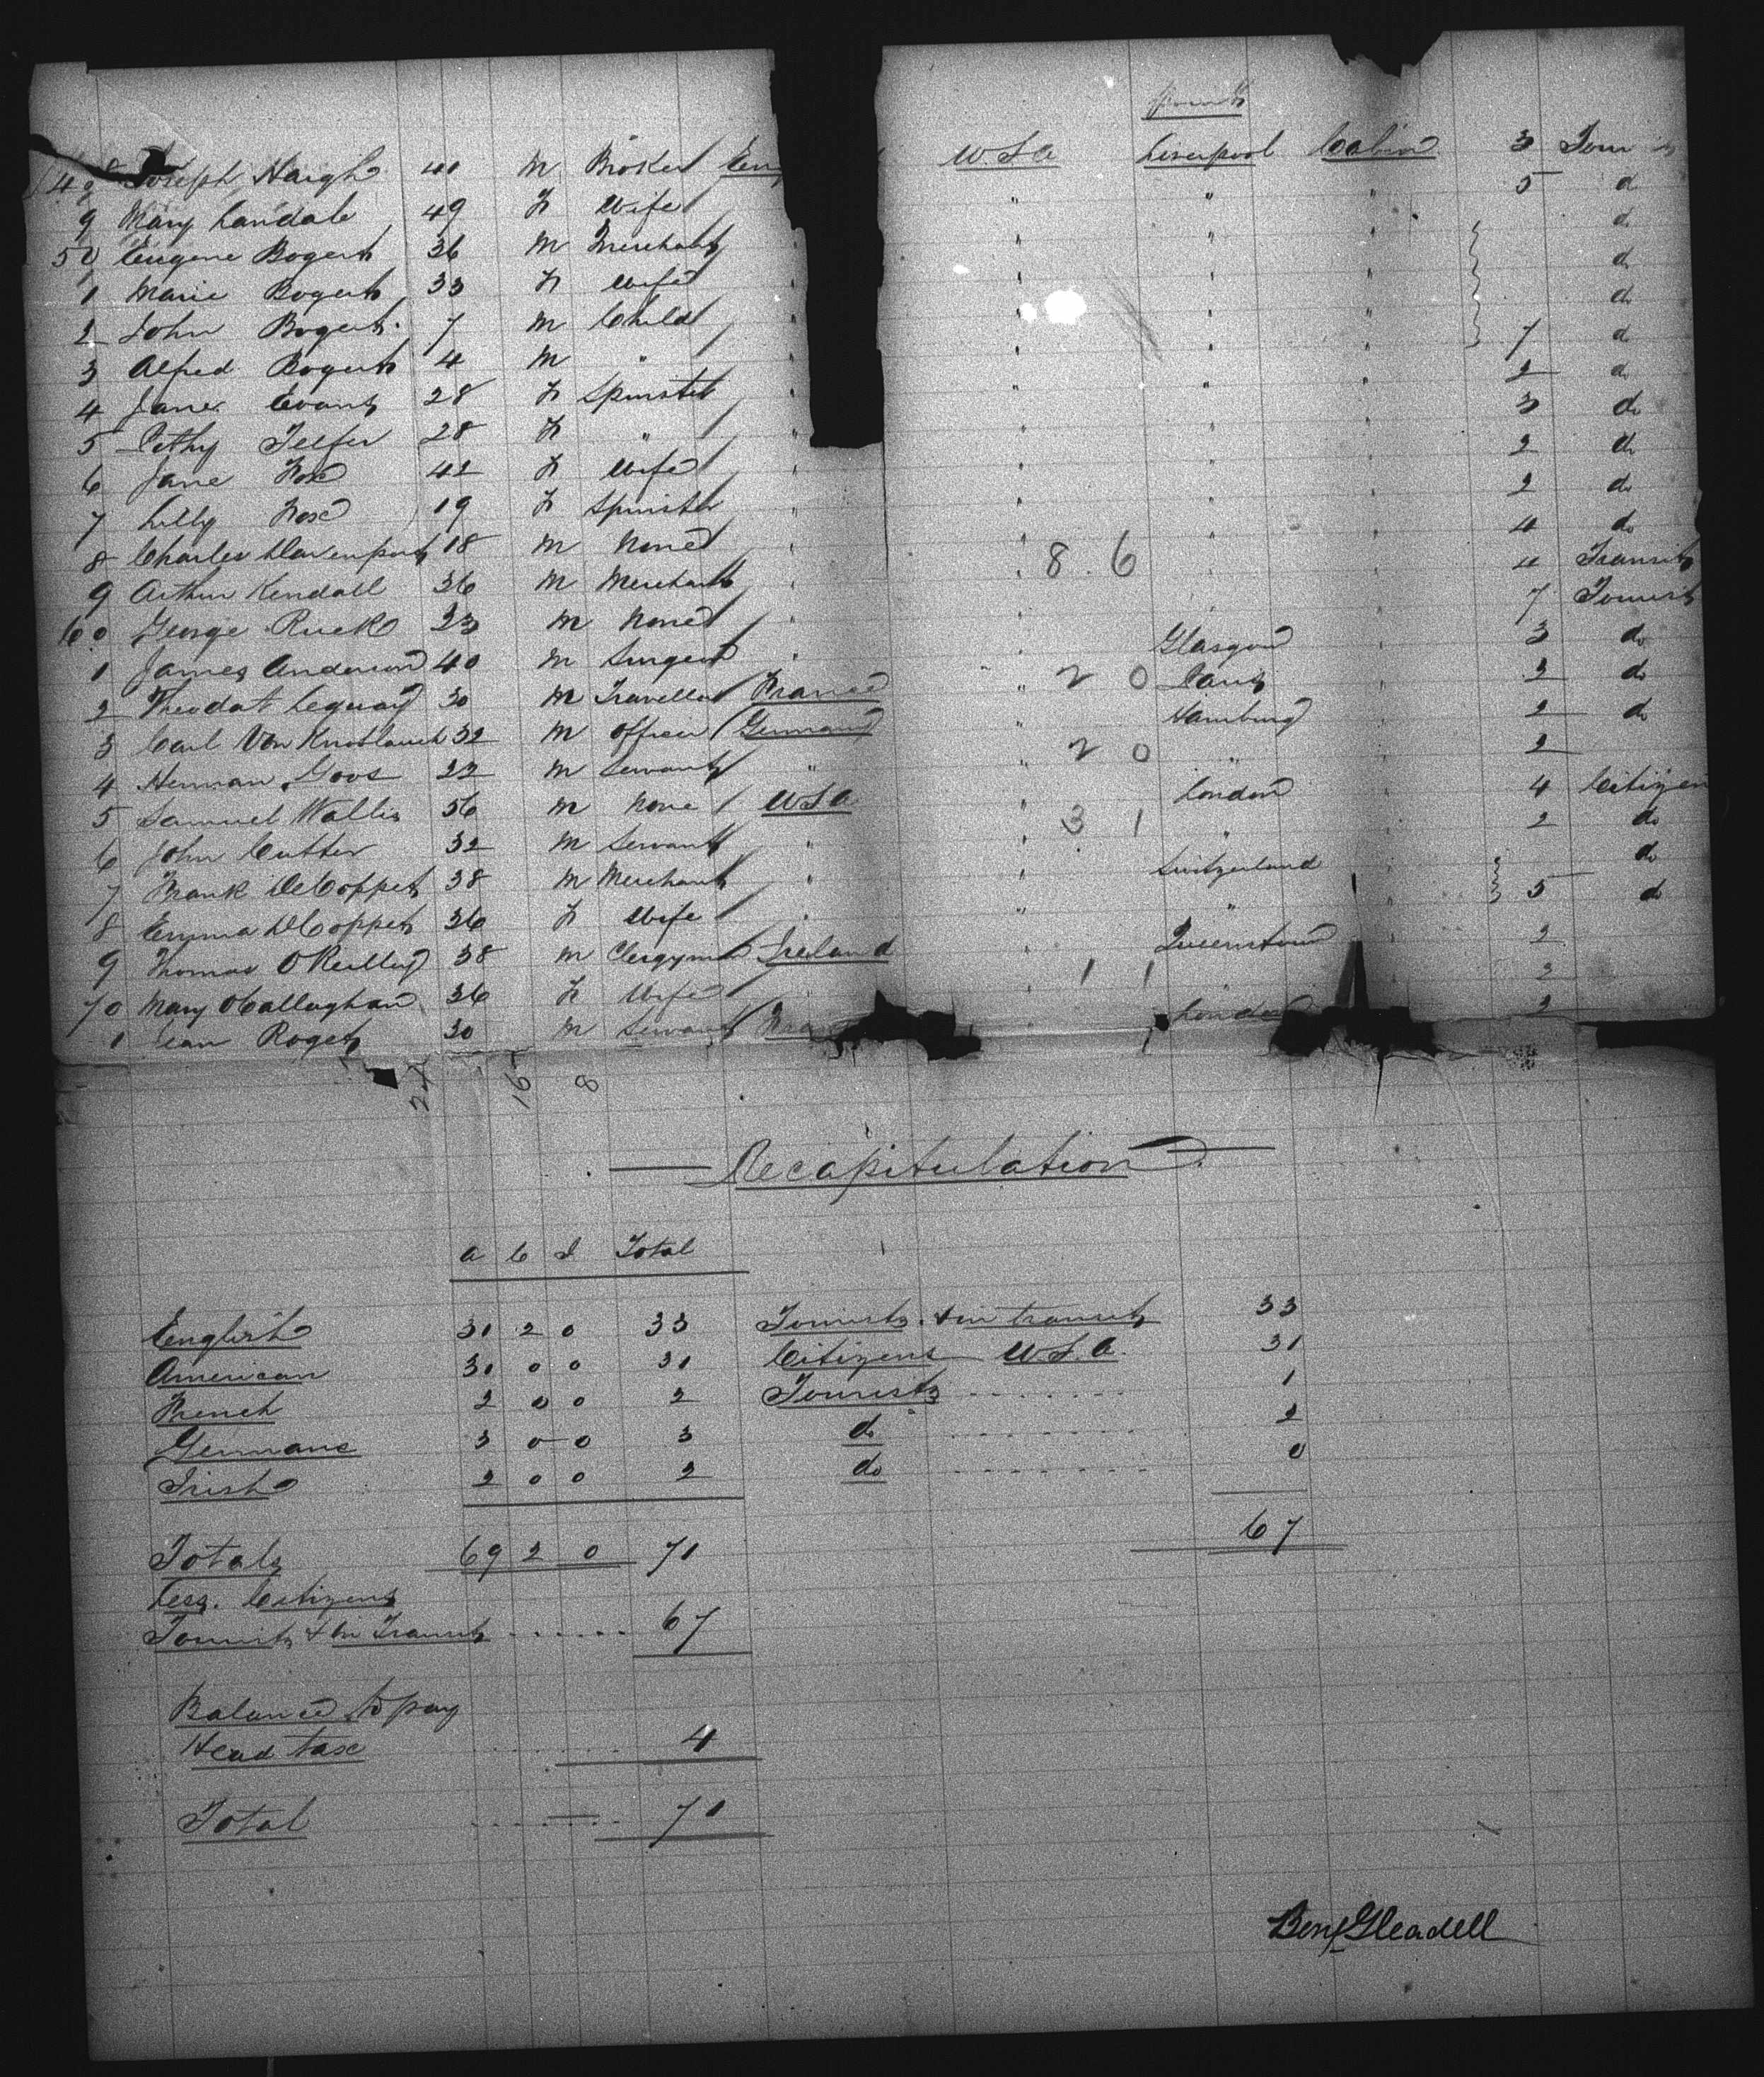 48 Joseph Haigh 40 M Broker Eng U S A Liverpool Cabin 3 Touris
9 Mary Landale 49 F Wife " " " " 5 do
50 Eugene Bogert 36 M Merchant " " " " do
1 Marie Bogert 33 F Wife " " " " do
2 John Bogert 7 M Child " " " " do
3 Alfred Bogert 4 M " " " " " 7 do
4 Jane Evans 28 F Spinster " " " " 2 do
5 Telfer 28 F " " " " " 3 do
6 Jane Fox 42 F Wife " " " " 2 do
7 Lilly Fox 19 F Spinster " " " " 2 do
8 Charles Davenport 18 M None " " " " 4 do
9 Arthur Kendall 36 M Merchant " " 8 . 6 " " 4 Transit
60 George Ruck 23 M None " " " 7 Tourist
1 James Anderson 40 M Surgeon " " Glasgow " 3 do
2 Theodat 30 M Traveller France " 2 0 Paris " 2 do
3 Carl Von Knoblauch 32 M Officer Germany " Hamburg " 2 do
4 Herman Goos 22 M Servant " " 2 0 " " 2
5 Samuel Wallis 56 M None U S A " London " 4 Citizen
6 John Cutter 32 M Servant " " 3 1 " " 2 do
7 Frank DeCoppet 38 M Merchant " " Switzerland " do
8 Emma DeCoppet 36 F Wife " " " " 5 do
9 Thomas O'Reilly 38 M Clergyman Ireland " Queenstown " 2
70 Mary O'Callaghan 36 F Wife " 1 1 " 2
1 Jean Roget 30 M Servant Fra London 2
24 16 8
Recapitulation
a c I Total
English 31 2 0 33 Tourists & in transit 33
American 31 0 0 31 Citizens U.S.A. 31
French 2 0 0 2 Tourists 1
Germans 3 0 0 3 do 2
Irish 2 0 0 2 do 0
Totals 69 2 0 71 67
Less. Citizens
Tourists & in Transit 67
Balance to pay
Head tax 4
Total 71
Benj Gleadell